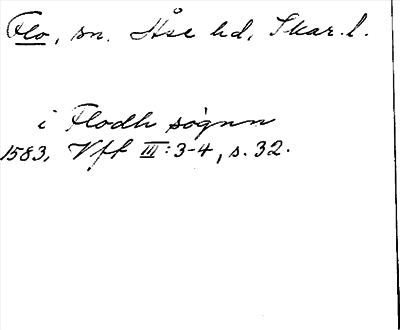 Flo, sn. Åse hd, Skar. l.
i Flodh sognn
1583, Vff III:3-4, s. 32.